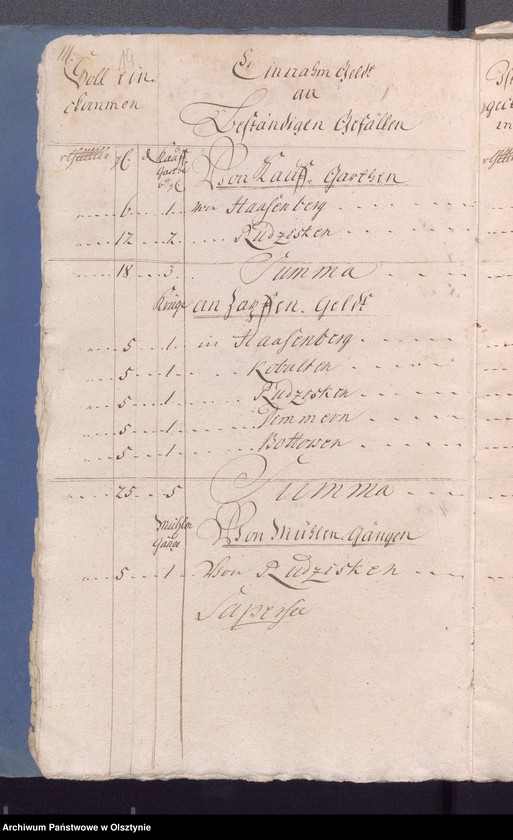 14
Soll ein
Einnahm Geldt
kommen
an
Beständigen Gefällen
Kauff
Garthe
Von Kauff Garthen
6. 1. von Haasenberg
12. 2. Rudzisken
18. 3. Summa
Krüge an Zapffen Geldt
5. 1. in Haasenberg
5. 1. Kobulten
5. 1. Rudzisken
5. 1. Dimmern
5. 1. Bottowen
25. 5 Summa
Mühlen
Gänge
Von Mühlen Gängen
5. 1. Von Rudzisken
Archiwum Państwowe w Olsztynie